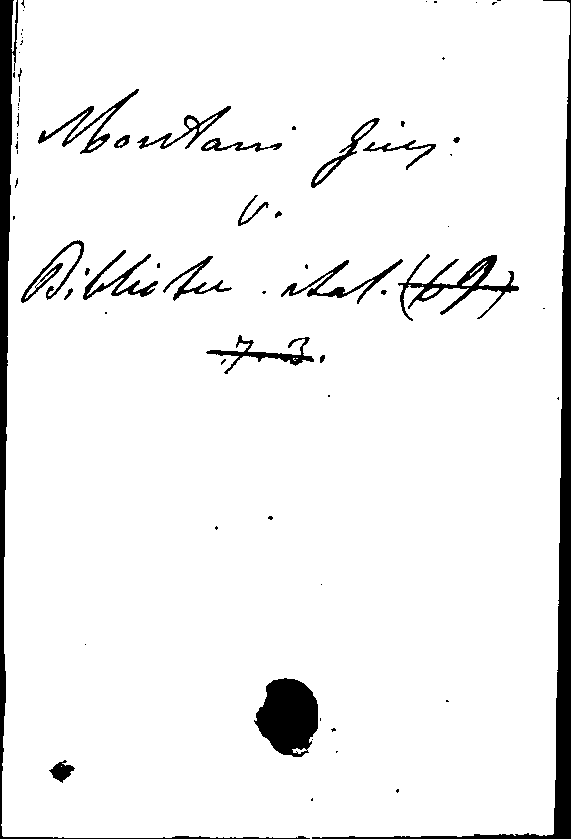 Montani Gius.
v.
Bibliotec. ital. (69)
7. 3.